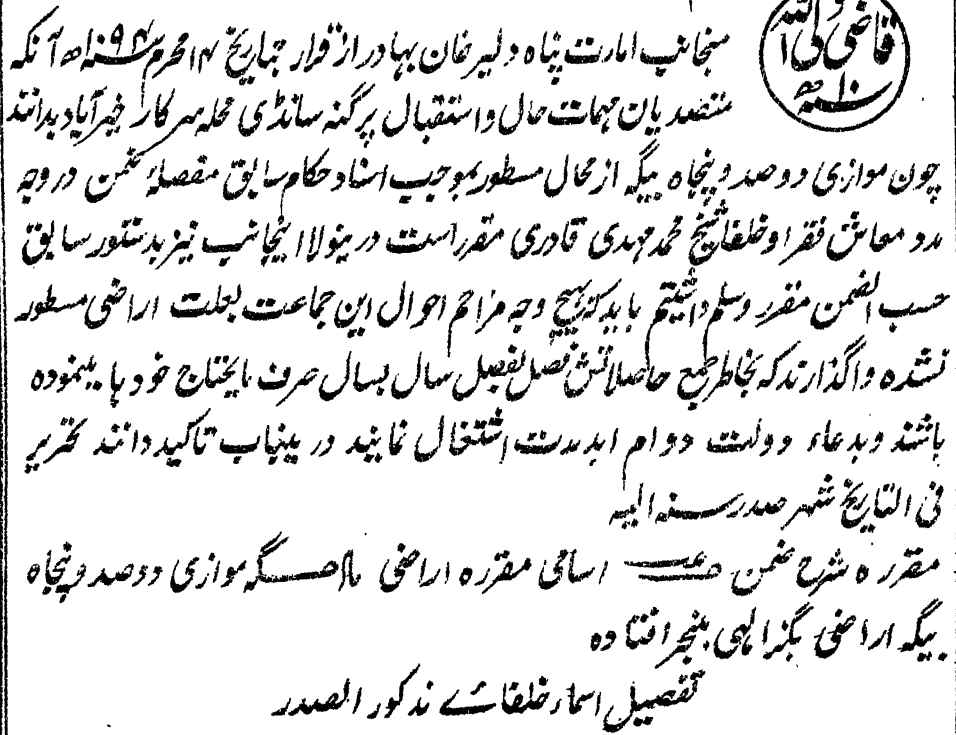 قاضی ولی اللہ
منجانب امارت پناہ دلیر خان بہادر از قرار بتاریخ ۱۴ محرم سنہ ۱۰۹۴ھ آنکہ
متصدیان مہمات حال و استقبال پرگنہ سانڈی محلہ سرکار خیرآباد بدانند
چون موازی دو صد و پنجاہ بیگہ از محال مسطور بموجب اسناد حکام سابق مفصلۂ ضمن در وجہ
مدد معاش فقرا و خلفا شیخ محمد مہدی قادری مقرر است درینولا اینجانب نیز بدستور سابق
حسب الضمن مقرر و مسلم داشتیم باید کہ بہیچ وجہ مزاحم احوال این جماعت بعلت اراضی مسطور
نشدہ واگذارند کہ بخاطر جمع حاصلاتش فصل بفصل سال بسال صرف مایحتاج خود ہا مینمودہ
باشند و بدعاء دولت دوام ابدمدت اشتغال نمایند درینباب تاکید دانند تحریر
فی التاریخ شہر صدر سنہ الیہ
مقررہ شرح ضمن اسامی مقررہ اراضی موازی دو صد و پنجاہ
بیگہ اراضی بگز الہی بنجر افتادہ
تفصیل اسماء خلفائے مذکور الصدر